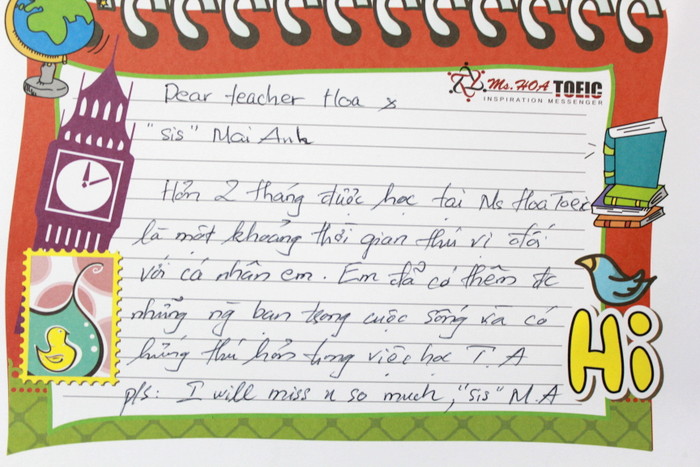 Ms. HOA TOEIC
INSPIRATION MESSENGER
Dear teacher Hoa x
"Sis" Mai Anh
Hơn 2 tháng được học tại Ms Hoa Toeic
là một khoảng thời gian thú vị đối
với cá nhân em. Em đã có thêm đc
những ng bạn trong cuộc sống và có
hứng thú hơn trong việc học T.A
p/s: I will miss u so much, "sis" M.A
Hi